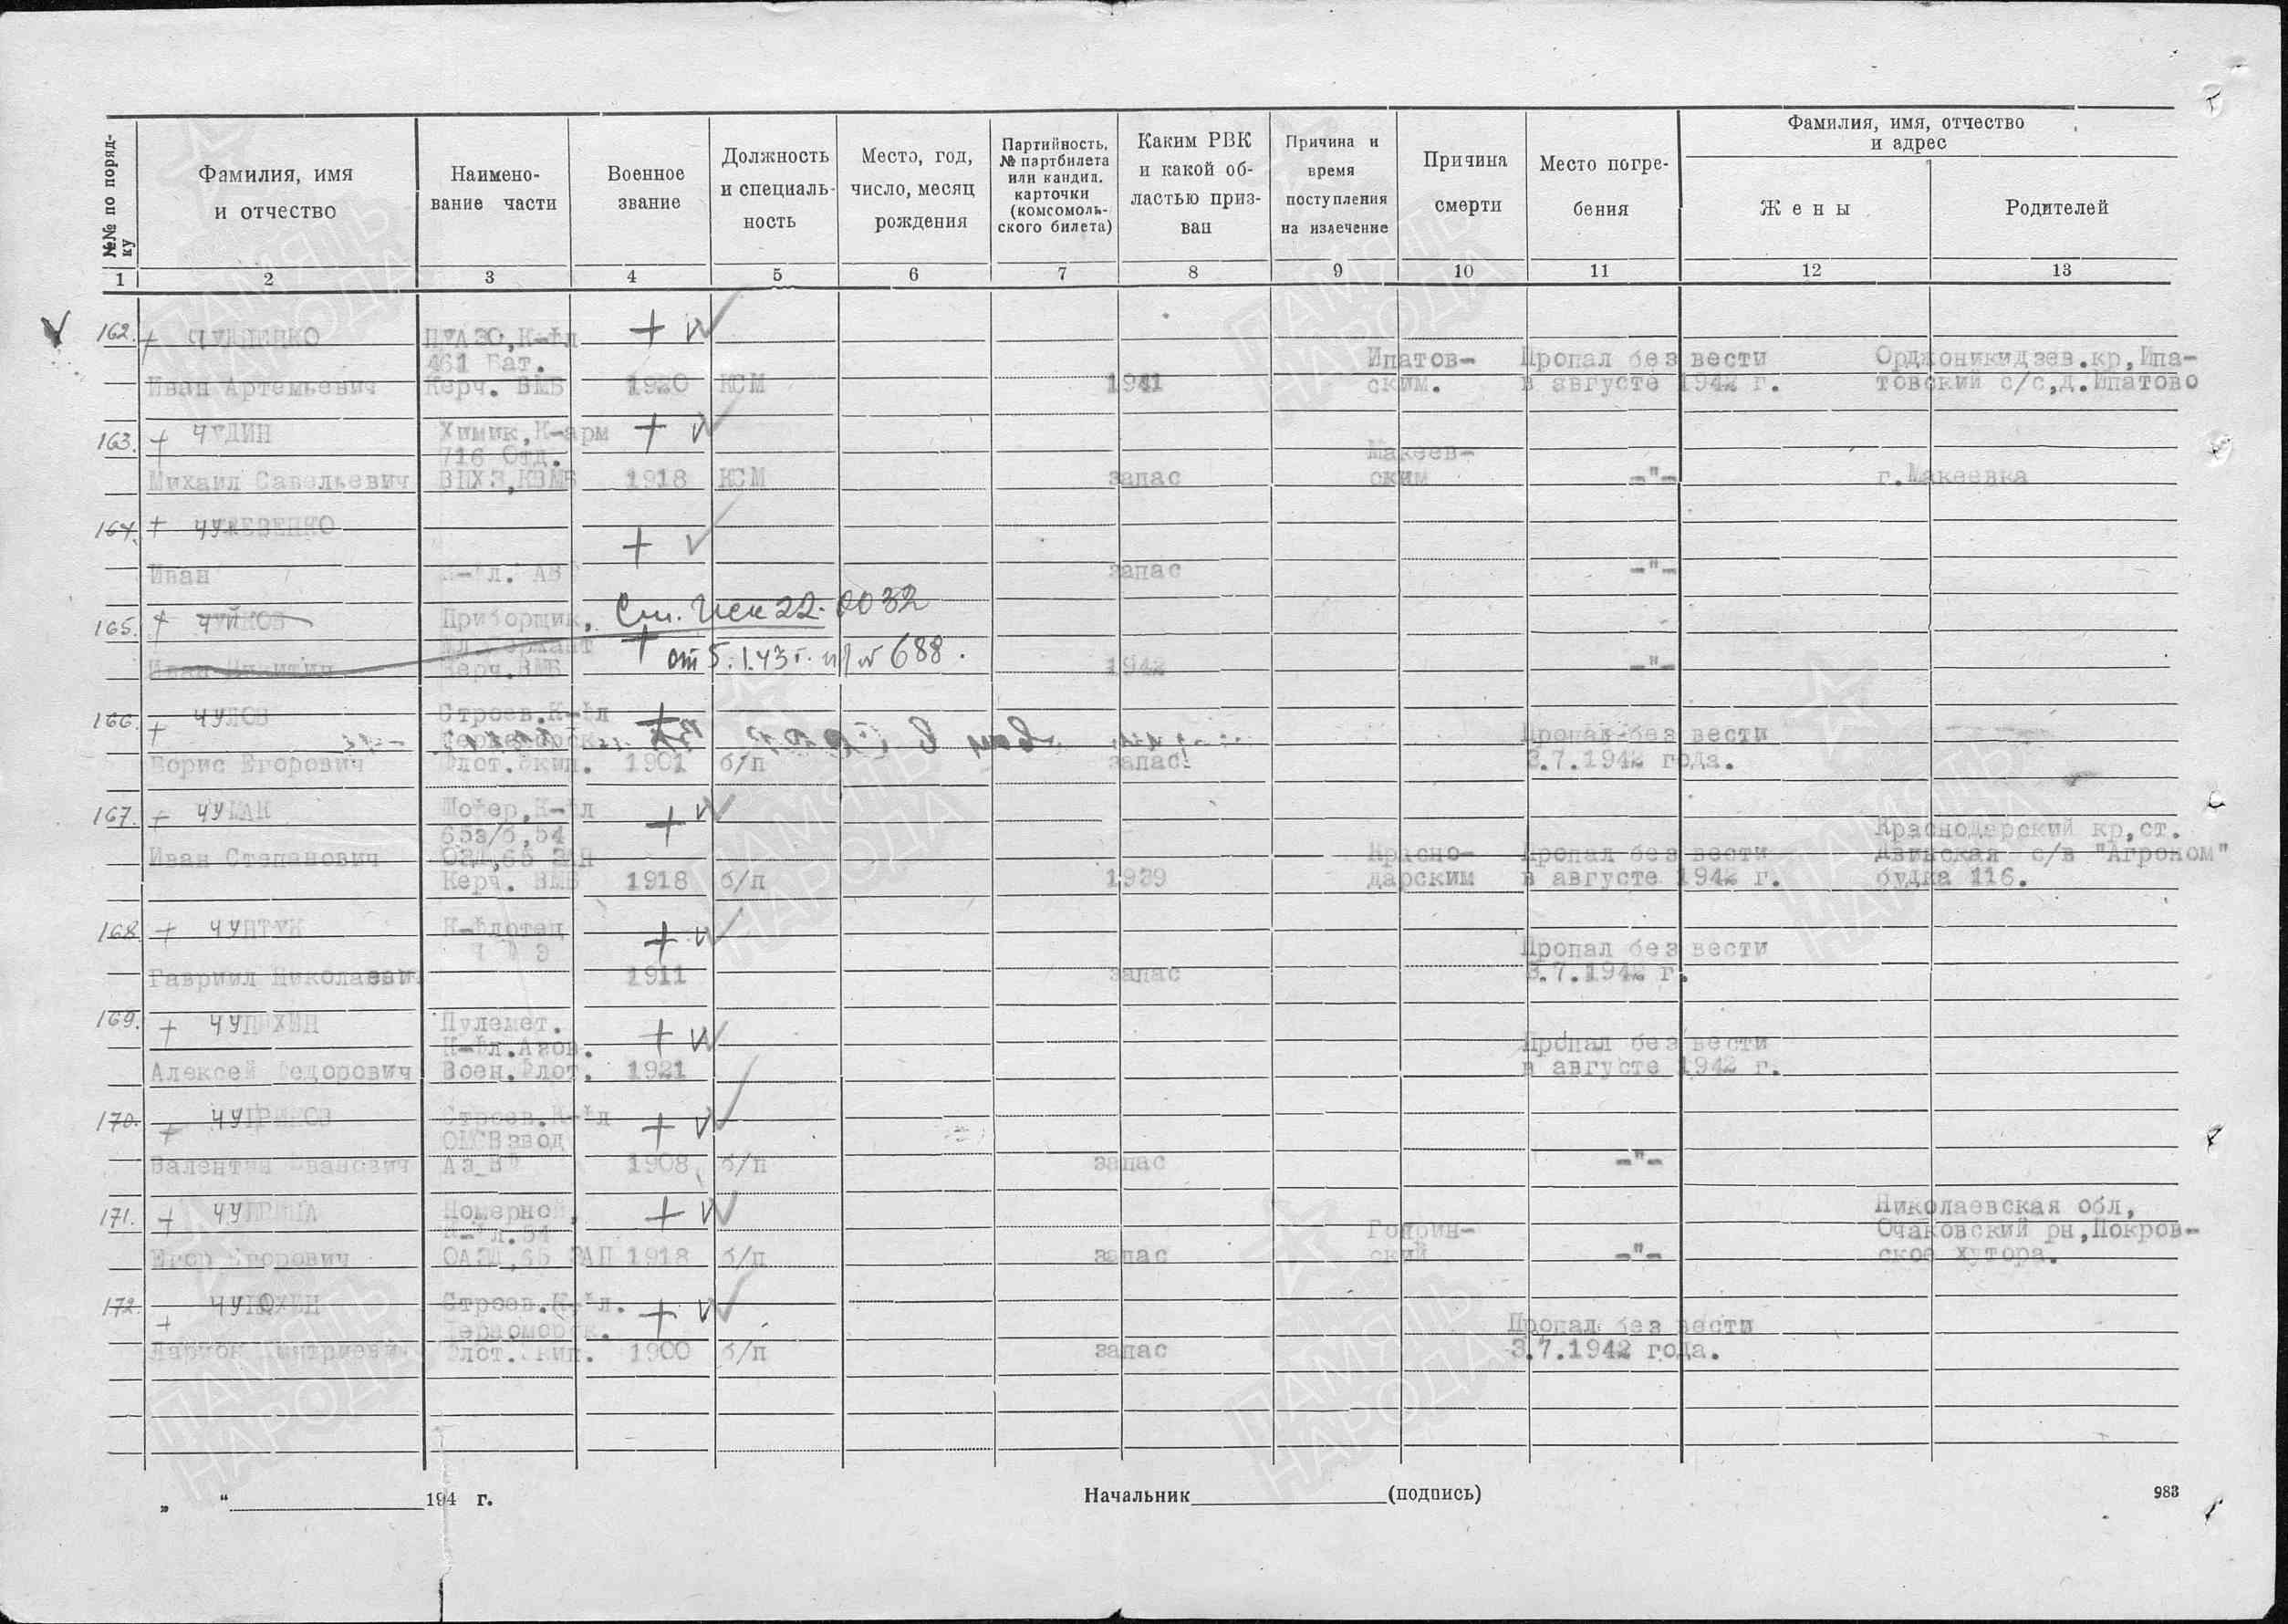 №№ по поряд-
ку
Фамилия, имя
и отчество
Наимено-
вание части
Военное
звание
Должность
и специаль-
ность
Место, год,
число, месяц
рождения
Партийность,
№ партбилета
или кандид.
карточки
(комсомоль-
ского билета)
Каким РВК
и какой об-
ластью приз-
ван
Причина и
время
поступления
на излечение
Причина
смерти
Место погре-
бения
Фамилия, имя, отчество
и адрес
Жены
Родителей
1 2 3 4 5 6 7 8 9 10 11 12 13
162. + К-фл + W
461 Бат. Ипатов- Пропал без вести Орджоникидзев.кр,Ипа-
Иван Артемьевич Керч. ВМБ 1920 КСМ 1941 ским. в августе 1942 г. товский с/с,д.Ипатово
163. + ЧУДИН Химик,К-арм + W
716 Отд. Макеев-
Михаил Савельевич ВПХЗ,КВМБ 1918 КСМ запас ским -"- г.Макеевка
164. + ЧУЖЕВЕНКО
+ V
Иван К-фл. АВФ запас -"-
165. + ЧУЙКОВ Приборщик, 22. 0032
Мл.сержант + от 5.1.43 г. 688.
Иван Керч.ВМБ 1942 -"-
166. + ЧУЛОВ Строев.К-фл +
Черноморск. Пропал без вести
Борис Егорович Флот.Экип. 1901 б/п запас 3.7.1942 года.
167. + Шофер,К-фл + W
65з/б,54 Краснодарский кр,ст.
Иван Степанович ОЗД,65 ЗАП Красно- Пропал без вести Двинская с/в "Агроном"
Керч. ВМБ 1918 б/п 1939 дарским в августе 1942 г. будка 116.
168. + ЧУПТУК К-флотец + W
Ч Ф Э Пропал без вести
Гавриил Николаевич 1911 запас 3.7.1942 г.
169. + ЧУПАХИН Пулемет. + W
К-фл.Азов. Пропал без вести
Алексей Федорович Воен.Флот. 1921 в августе 1942 г.
170. + ЧУПРИКОВ Строев.К-фл + W
взвод
Валентин Иванович Аз_ВФ 1908 б/п запас -"-
171. + ЧУПРИНА Номерной, + W Николаевская обл,
К-фл.54 Очаковский рн,Покров-
Егор Егорович ОАЗД,65 ЗАП 1918 б/п запас ский -"- ское хутора.
172. + Строев.К-фл. + W
Черноморск. Пропал без вести
Флот.Экип. 1900 б/п запас 3.7.1942 года.
„ “ 194 г. Начальник (подпись) 983
ПАМЯТЬ
НАРОДА